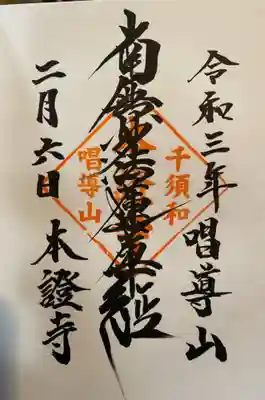 令和三年唱導山
南無妙法蓮華経
二月六日本證寺
千須和
唱導山